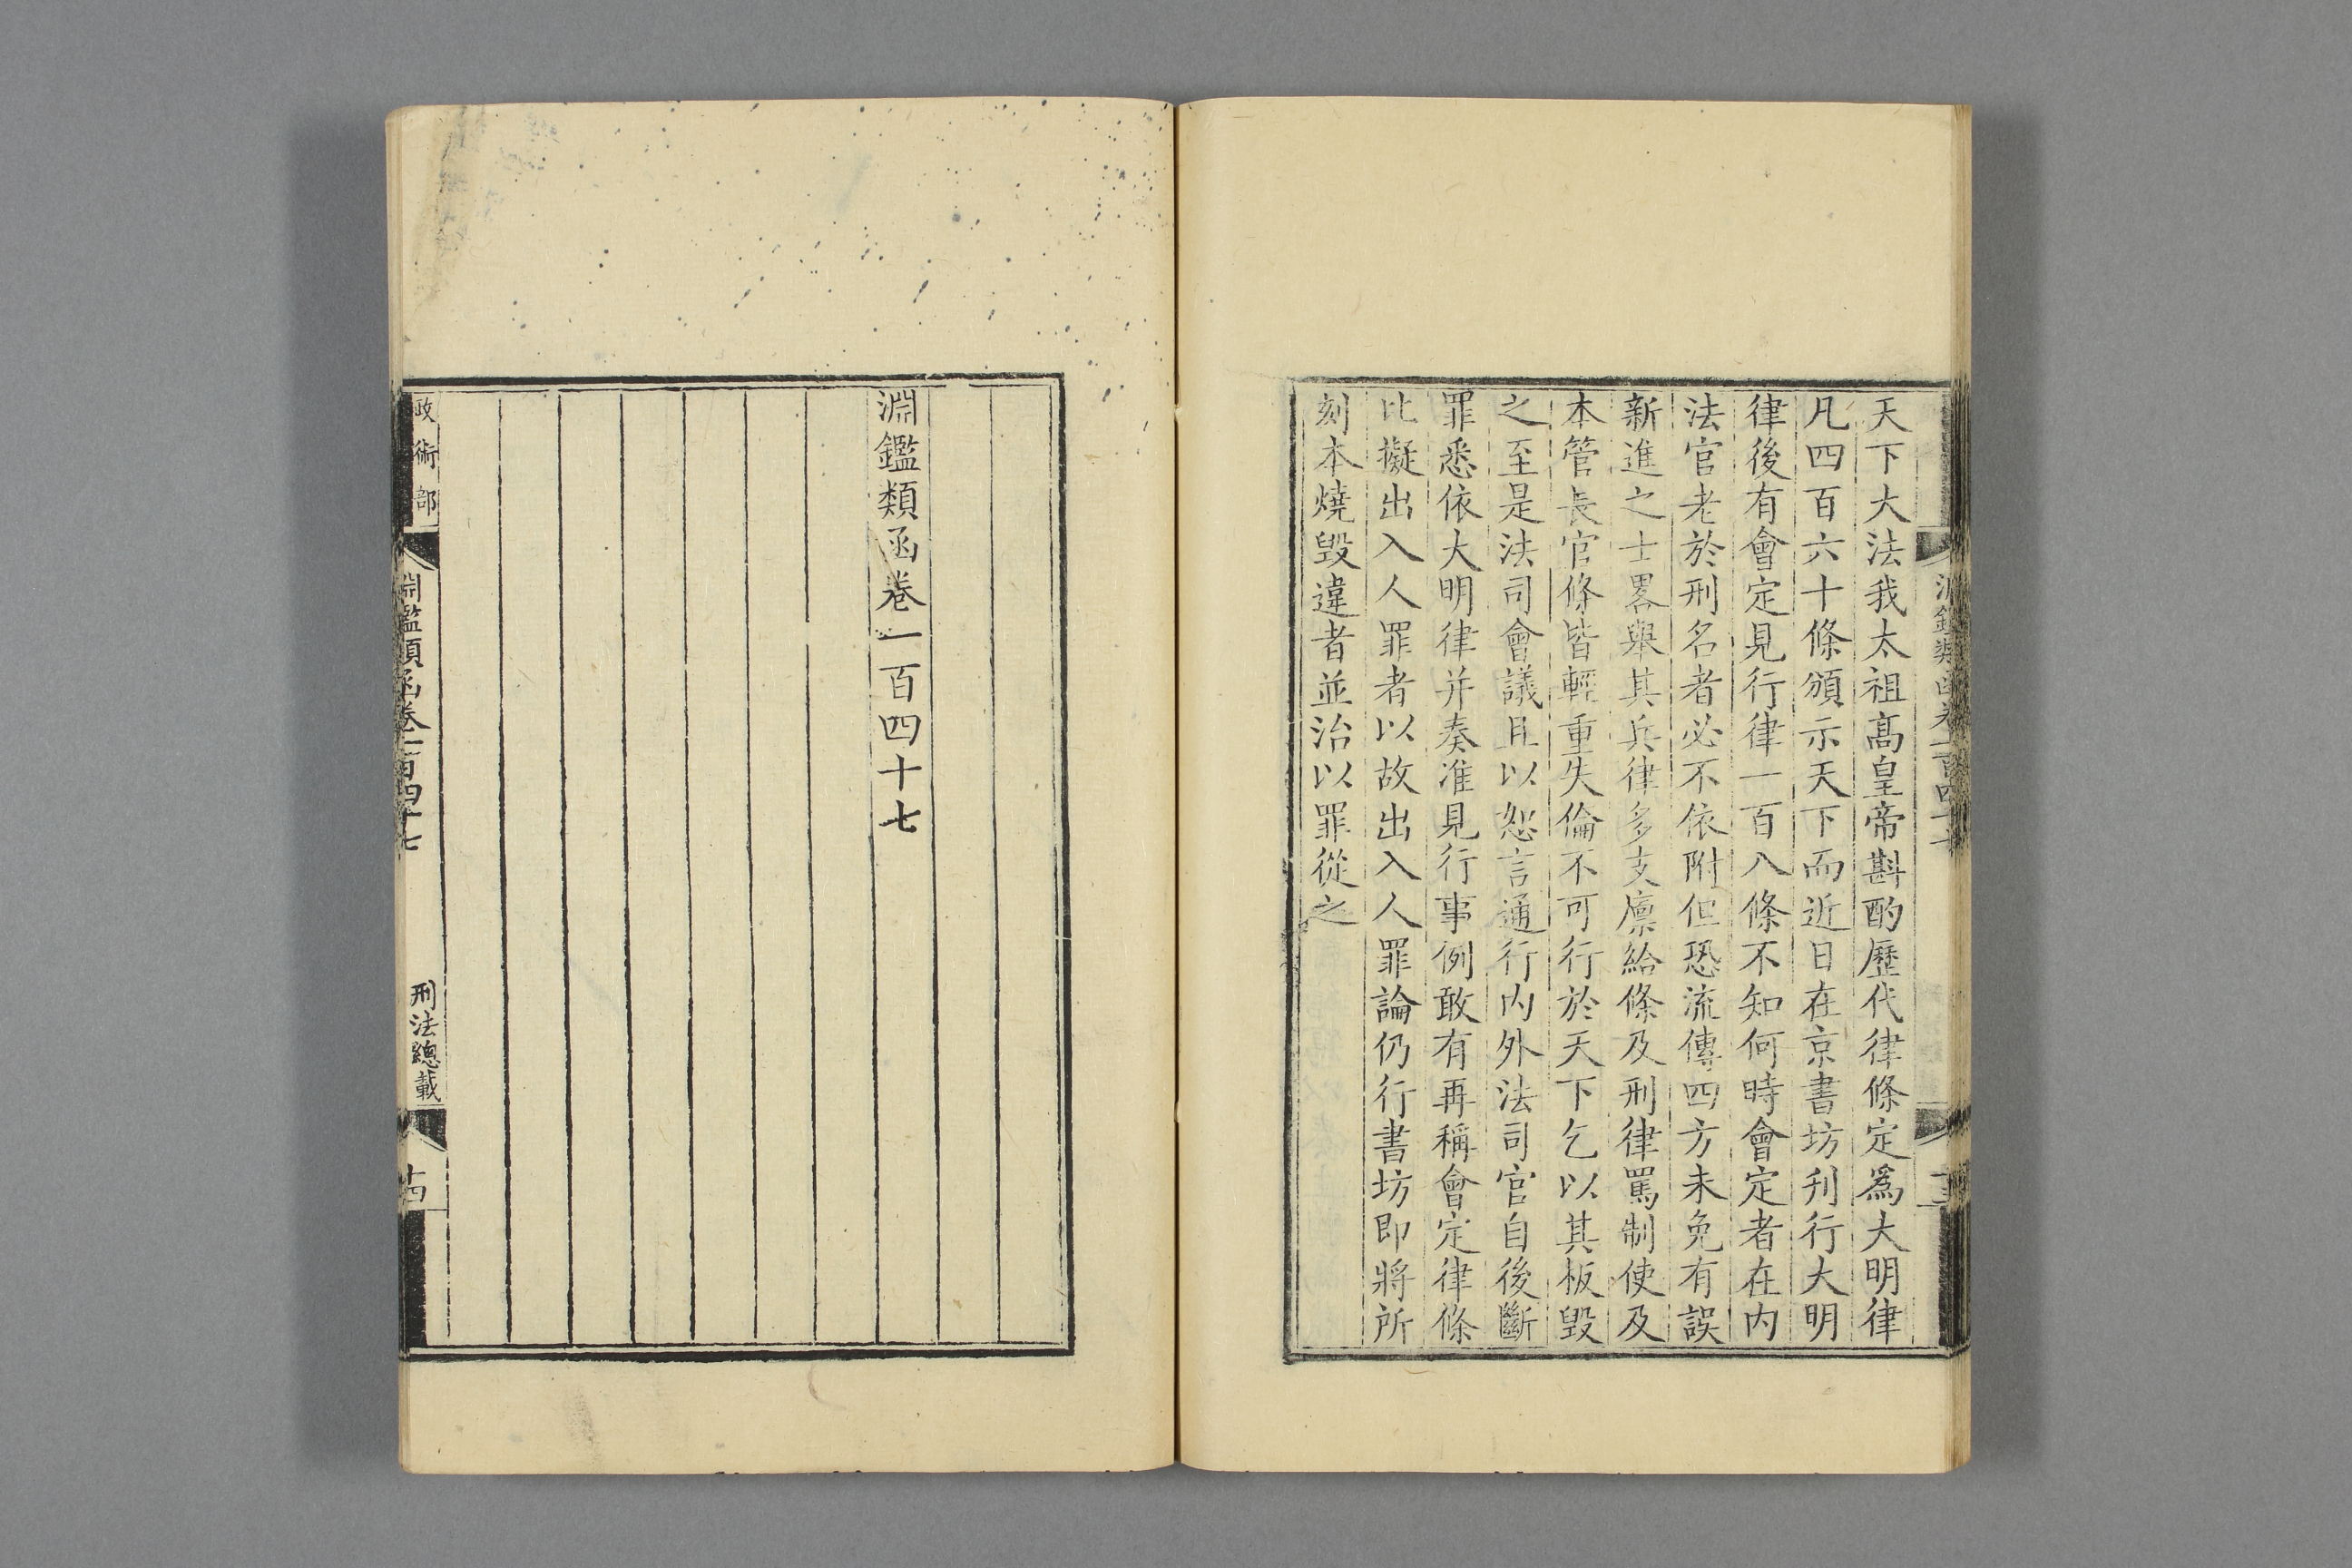 天下大法我太祖髙皇帝斟酌歷代律條定爲大明律
凡四百六十條頒示天下而近日在京書坊刋行大明
律後有會定見行律一百八條不知何時會定者在内
法官老於刑名者必不依附但恐流傳四方未免有誤
新進之士畧舉其兵律多支廪給條及刑律罵制使及
本管長官條皆輕重失倫不可行於天下乞以其板毁
之至是法司會議且以恕言通行内外法司官自後斷
罪悉依大明律并奏准見行事例敢有再稱會定律條
比擬出入人罪者以故出入人罪論仍行書坊即將所
刻本燒毁違者並治以罪從之
淵鑑類函卷一百四十七
淵鑑類函卷一百四十七
政術部
淵鑑類函卷一百四十七
刑法總載
十四